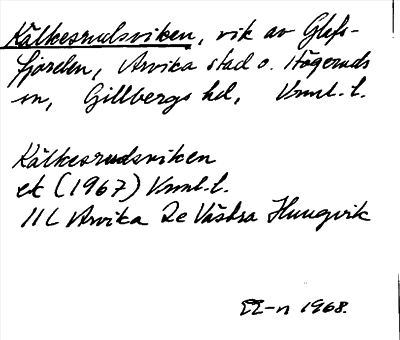 Kälkesrudsviken, vik av Glafs-
fjorden, Arvika stad o. Högeruds
sn, Gillbergs hd, Vrml. l.
Kälkesrudsviken
ek (1967) Vrml. l.
11C Arvika 2e Västra Hungvik
1968.